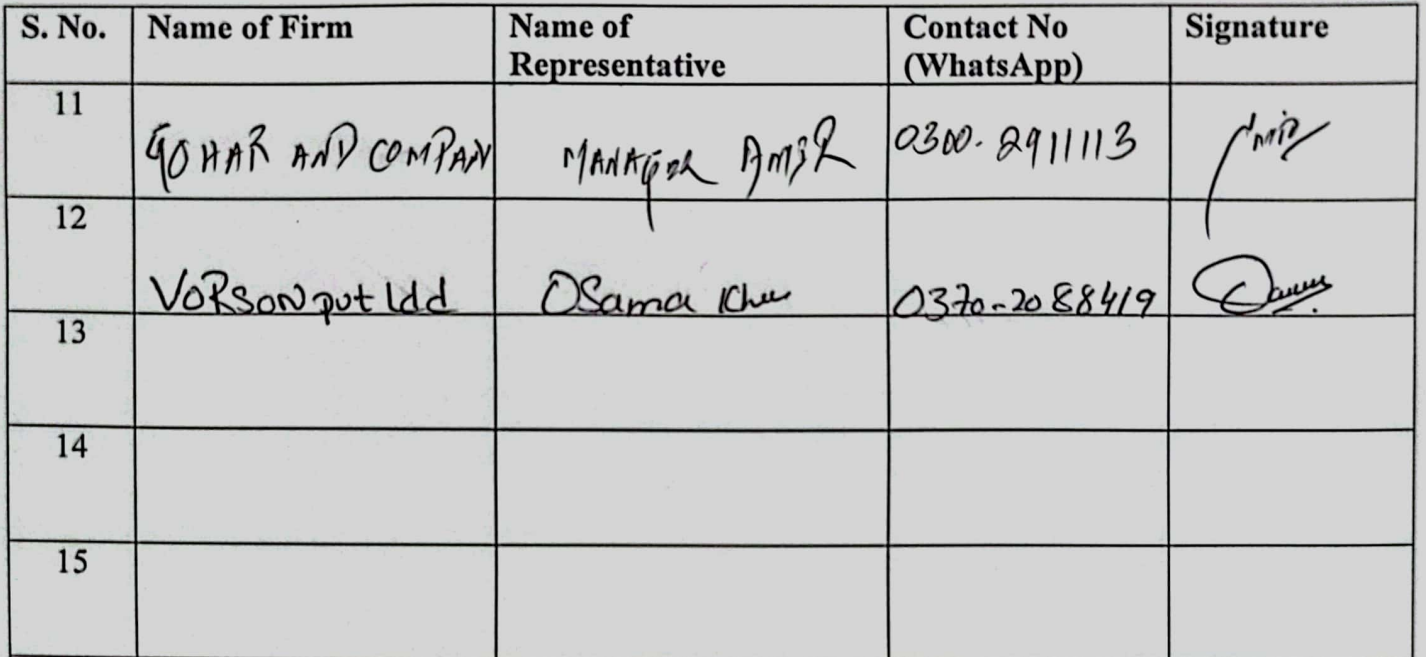 S. No. Name of Firm Name of Representative Contact No (WhatsApp) Signature
11 GOHAR AND COMPAN MANAGER AMIR 0300-2911113
12 VORSON pvt Ldd OSama 0370-2088419
13
14
15